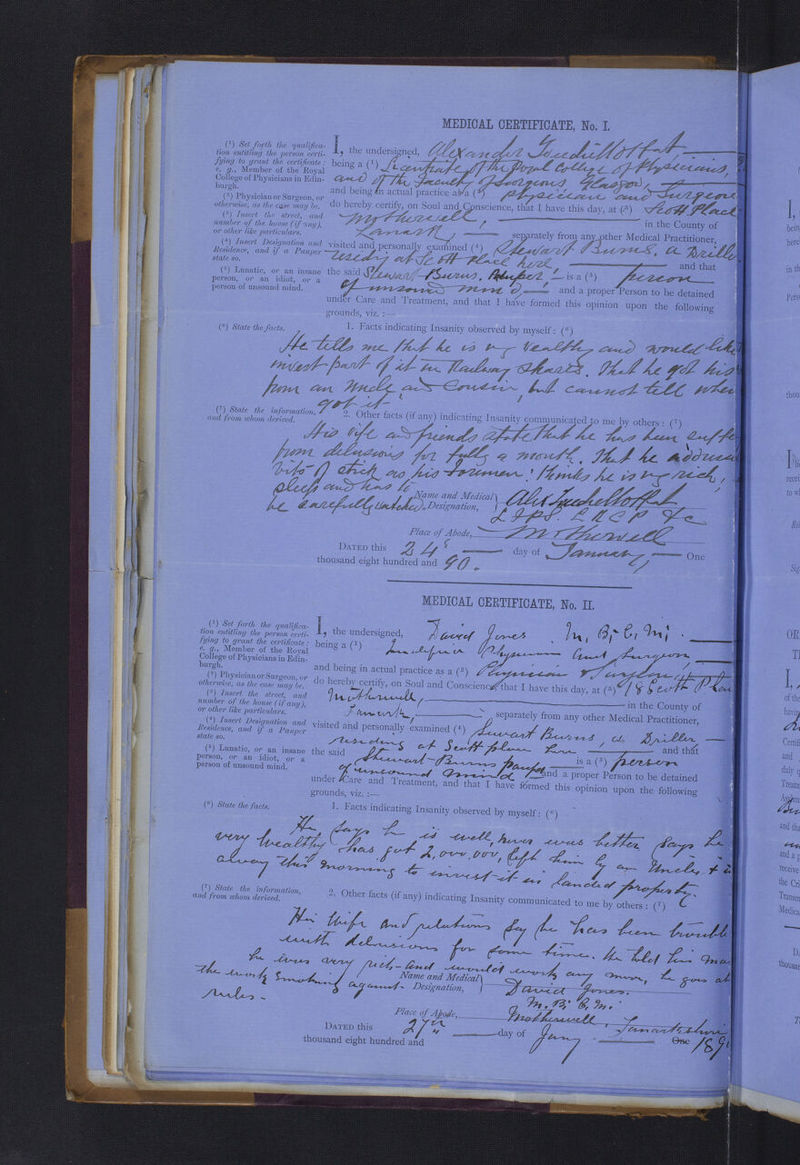 MEDICAL CERTIFICATE, No. I.
(¹) Set forth the qualifica-
tion entitling the person certi-
fying to grant the certificate:
e. g., Member of the Royal
College of Physicians in Edin-
burgh.
(²) Physician or Surgeon, or
otherwise, as the case may be.
(³) Insert the street, and
number of the house (if any),
or other like particulars.
(⁴) Insert Designation and
Residence, and if a Pauper
state so.
(⁵) Lunatic, or an insane
person, or an idiot, or a
person of unsound mind.
I, the undersigned, Alexander Loudielloffat
being a (¹) Licentiate of the Royal College of Physicians,
and of the Faculty of Surgeons, Glasgow,
and being in actual practice as a (²) physician and Surgeon
do hereby certify, on Soul and Conscience, that I have this day, at (³) Scott Place
Motherwell, in the County of
Lanark, separately from any other Medical Practitioner,
visited and personally examined (⁴) Stewart Burns, a Driller
residing at Scott Place here and that
the said Stewart Burns, Pauper is a (⁵) person
of unsound mind and a proper Person to be detained
under Care and Treatment, and that I have formed this opinion upon the following
grounds, viz.:—
(⁶) State the facts.
1. Facts indicating Insanity observed by myself: (⁶)
He tells me that he is very wealthy and would like
invest part of it in Railway shares. That he got his
from an Uncle and Cousin, but cannot tell when
got it.
(⁷) State the information,
and from whom derived.
2. Other facts (if any) indicating Insanity communicated to me by others: (⁷)
His wife and friends state that he has been
from delusions for fully a month. That he
bits of stick as his foremen! thinks he is very rich,
sleeps and has to
be carefully watched.
Name and Medical
Designation,
Alex
L F P S. L R C P &c
Place of Abode, Motherwell
DATED this 24 day of January One
thousand eight hundred and 90.
MEDICAL CERTIFICATE, No. II.
(¹) Set forth the qualifica-
tion entitling the person certi-
fying to grant the certificate:
e. g., Member of the Royal
College of Physicians in Edin-
burgh.
(²) Physician or Surgeon, or
otherwise, as the case may be.
(³) Insert the street, and
number of the house (if any),
or other like particulars.
(⁴) Insert Designation and
Residence, and if a Pauper
state so.
(⁵) Lunatic, or an insane
person, or an idiot, or a
person of unsound mind.
I, the undersigned, David Jones M, B; C, M;
being a (¹) Physician and Surgeon
and being in actual practice as a (²) Physician & Surgeon
do hereby certify, on Soul and Conscience, that I have this day, at (³) 18 Scott Place
Motherwell, in the County of
Lanark, separately from any other Medical Practitioner,
visited and personally examined (⁴) Stewart Burns, a Driller
residing at Scott place here and that
the said Stewart Burns pauper is a (⁵) person
of unsound mind and a proper Person to be detained
under Care and Treatment, and that I have formed this opinion upon the following
grounds, viz.:—
(⁶) State the facts.
1. Facts indicating Insanity observed by myself: (⁶)
He says he is well, never was better says he
very wealthy has got 2,000,000, left him by an Uncle &
away this morning to invest it in landed property.
(⁷) State the information,
and from whom derived.
2. Other facts (if any) indicating Insanity communicated to me by others: (⁷)
His Wife and relations say he has been
with delusions for some time. He told his
he was very rich - and would work any more, he goes
the work smoking against
rules -
Name and Medical
Designation,
David Jones.
M, B; C, M;
Place of Abode, Motherwell, Lanarkshire
DATED this 27th day of Jany. One
thousand eight hundred and 189